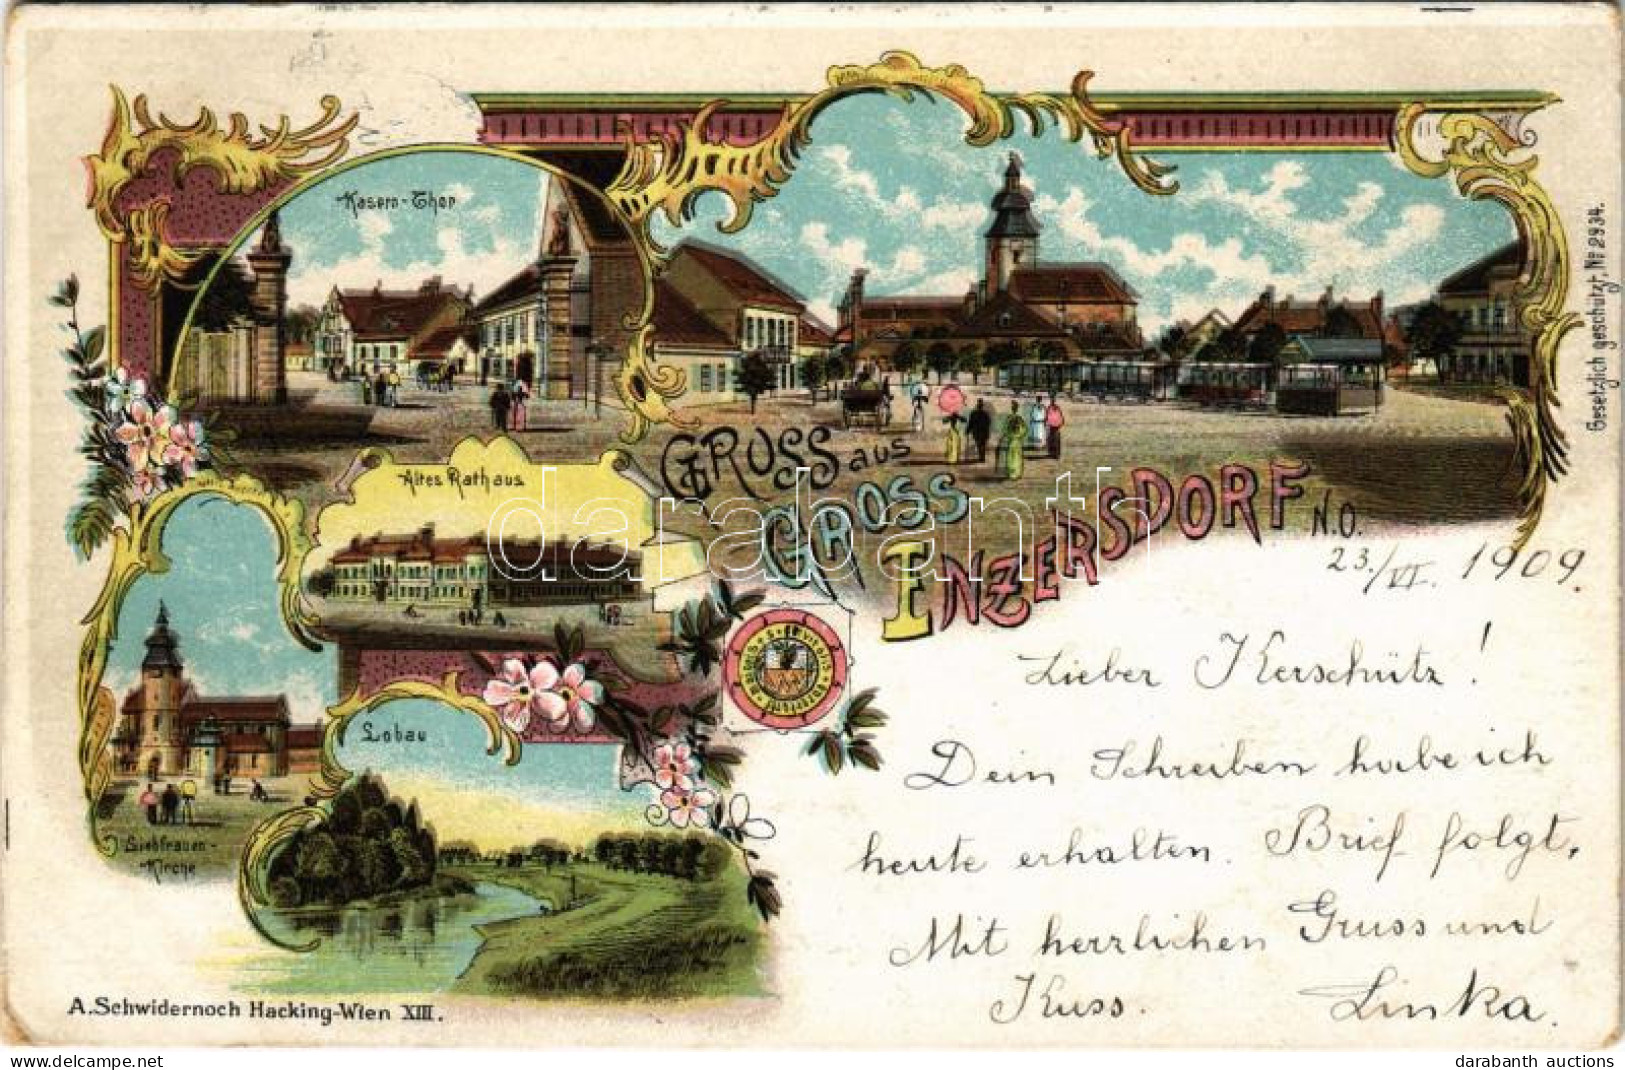 Kasern-Thor
Altes Rathaus
GRUSS aus
GROSS
INZERSDORF N.O.
Liebfrauen-
Kirche
Lobau
Gesetzlich geschützt, № 2934.
23./VI. 1909.
Lieber Kerschütz!
Dein Schreiben habe ich
heute erhalten. Brief folgt.
Mit herzlichen Gruss und
Kuss. Linka.
A. Schwidernoch Hacking-Wien XIII.
darabanth
darabanth auctions